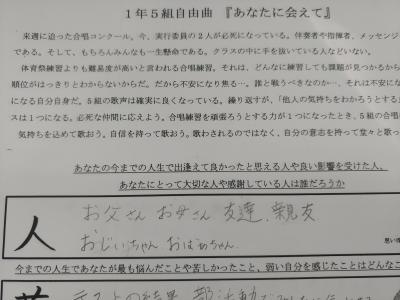 1年5組自由曲 『あなたに会えて』
来週に迫った合唱コンクール。今、実行委員の2人が必死になっている。伴奏者や指揮者、メッセンジ
である。そして、もちろんみんなも一生懸命である。クラスの中に手を抜いている人などいない。
体育祭練習よりも難易度が高いと言われる合唱練習。それは、どんなに練習しても課題が見つかるから
順位がはっきりとわからないからだ。だから不安になり焦る…。誰と戦うべきなのか…、それは不安にな
になる自分自身だ。5組の歌声は確実に良くなっている。繰り返すが、「他人の気持ちをわかろうとする
スは1つになる。必死な仲間に応えよう。合唱練習を頑張ろうとする力が1つになったとき、5組の合唱
気持ちを込めて歌おう。自信を持って歌おう。歌わされるのではなく、自分の意志を持って堂々と歌っ
あなたの今までの人生で出逢えて良かったと思える人や良い影響を受けた人、
あなたにとって大切な人や感謝している人は誰だろうか
人
お父さん お母さん 友達、親友
おじいちゃん おばあちゃん
思い
今までの人生であなたが最も悩んだことや苦しかったこと、弱い自分を感じたことはどんなこ
テストの結果 部活動で